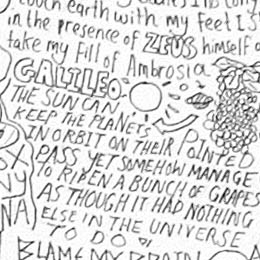 touch earth with my feet I
in the presence of ZEUS himself
take my fill of Ambrosia
GALILEO:
THE SUN CAN
KEEP THE PLANETS
IN ORBIT ON THEIR POINTED
PASS YET SOMEHOW MANAGE
TO RIPEN A BUNCH OF GRAPES
AS THOUGH IT HAD NOTHING
ELSE IN THE UNIVERSE
TO DO
NY
NA
BLAME MY BRAIN